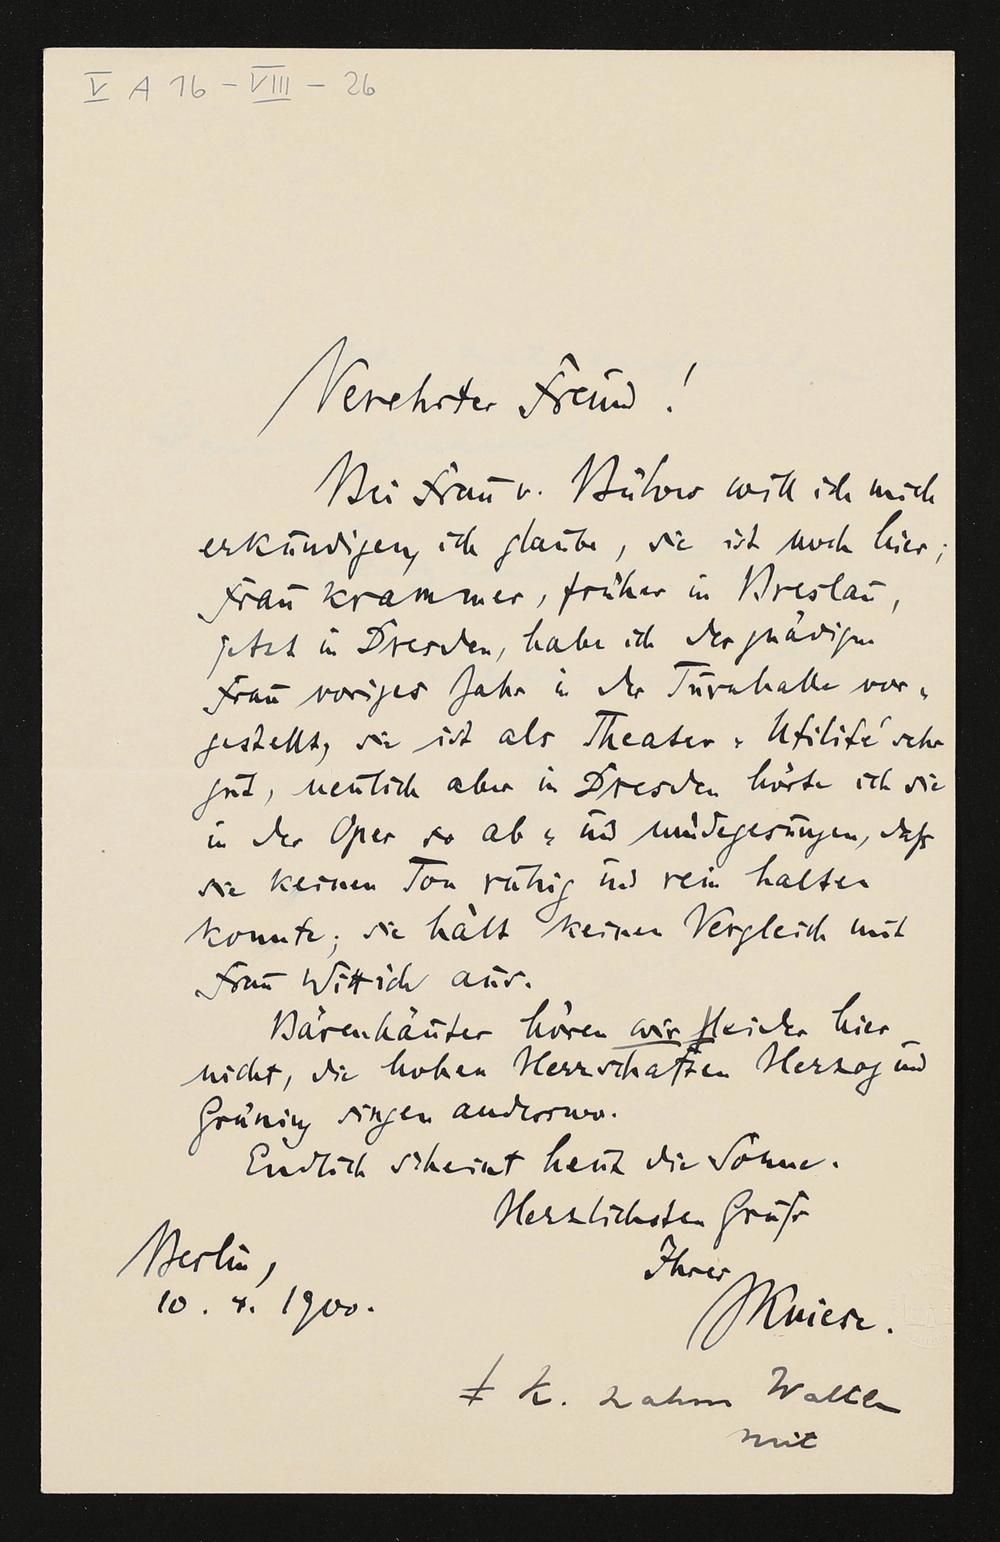 V A 16 - VIII - 26
Verehrter Freund!
Bei Frau v. Bülow will ich mich
erkundigen, ich glaube, sie ist noch hier;
Frau Krammer, früher in Breslau,
jetzt in Dresden, habe ich der gnädigen
Frau voriges Jahr in der Turnhalle vor-
gestellt, sie ist als Theater-Utilité sehr
gut, neulich aber in Dresden hörte ich sie
in der Oper so ab- und müdegesungen, daß
sie keinen Ton ruhig und rein halten
konnte; sie hält keinen Vergleich mit
Frau Wittich aus.
Bärenhäuter hören wir leider hier
nicht, die hohen Herrschaften Herzog und
Grüning singen anderswo.
Endlich scheint heut die Sonne.
Herzlichsten Gruß
Ihres
JKniese.
Berlin,
10. 4. 1900.
K. nahm
mit